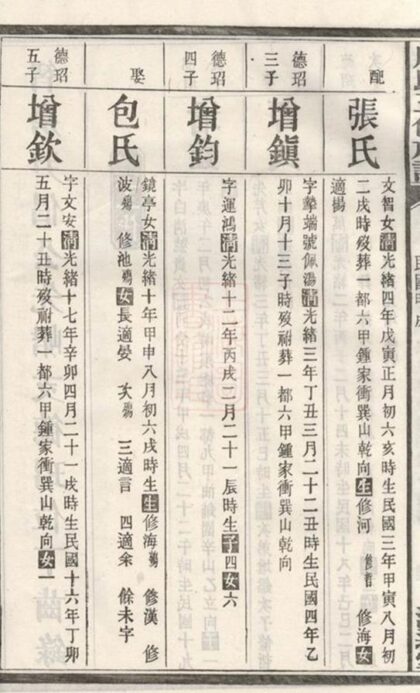 配
張氏
文智女清光緒四年戊寅正月初六亥時生民國三年甲寅八月初
二戌時歿葬一都六甲鍾家衝巽山乾向生修河 修哲 修海女一
適楊
德玿
三子
增鎮
字擊端號佩湯清光緒三年丁丑三月二十二丑時生民國四年乙
卯十月十三子時歿葬一都六甲鍾家衝巽山乾向
德玿
四子
增鈞
字運鴻清光緒十二年丙戌二月二十一辰時生子四女六
娶
包氏
鏡亭女清光緒十年甲申八月初六戌時生生修海 修漢 修
波 修池 女長適晏 次 三適言 四適余 餘未字
德玿
五子
增欽
字文安清光緒十七年辛卯四月二十一戌時生民國十六年丁卯
五月二十丑時歿祔葬一都六甲鍾家衝巽山乾向女一